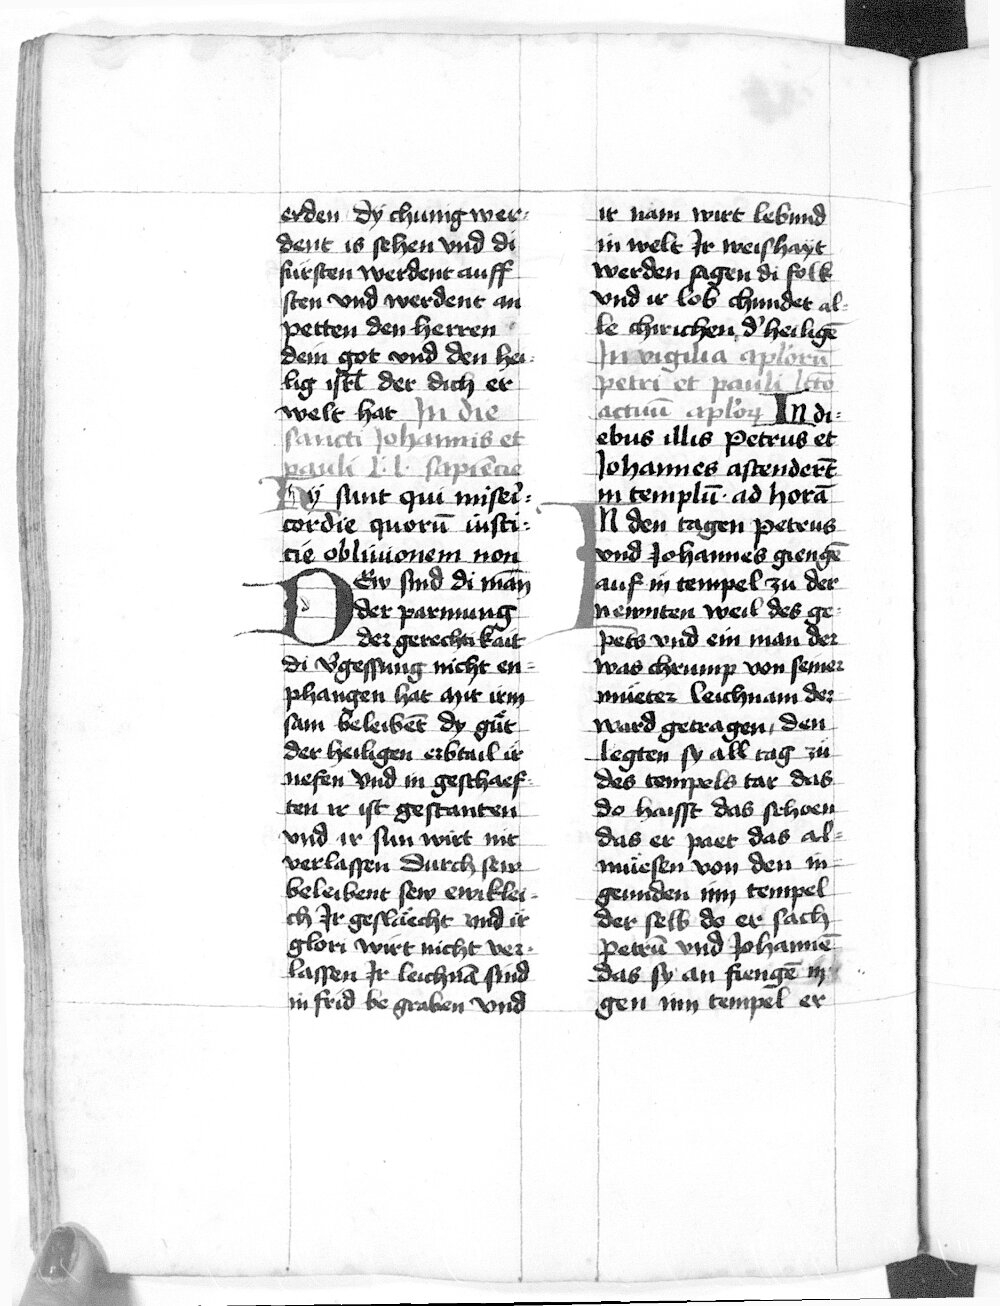 erden Dy chunig wer-
dent is sehen vnd di
fursten werdent auff
sten vnd werdent an
petten den herren
dein got vnd den hei-
lig isrl der dich er
welt hat In die
sancti Johannis et
pauli l. l. sapiēcie
Hy sunt qui miseri-
cordie quorū iusti-
cie obliuionem non
Dew sind di mān
der parmung
der gerechtikait
di v͛gessung nicht en-
phangen hat mit irm
sam beleibēt dy gůt
der heiligen erbtail ir
nefen vnd in geschaef-
ten ir ist gestanten
vnd ir sun wirt nit
verlassen Durch sew
beleibent sew ewiklei-
ch Jr geslaecht vnd ir
glori wirt nicht ver-
lassen Jr leichnā sind
in frid begraben vnd
ir nam wirt lebund
in welt Jr weishayt
werden sagen di folk
vnd ir lob chundet al-
le chirichen d͛ heiligē
In vigilia aplorū
petri et pauli lcto
actuū aplorꝝ In di-
ebus illis Petrus et
Johannes ascenderēt
in templū ad horā
In den tagen petrus
vnd Johannes giengē
auf in tempel zu der
newnten weil des ge-
pets vnd ein man der
was chrump von seiner
mueter leichnam der
ward getragen den
legten sy all tag zu
des tempels tar das
do haisst das schoen
das er paet das al-
muesen von den in
geunden inn tempel
der selb do er sach
Petrū vnd Johannē
das sy an fiengē in
gen inn tempel er